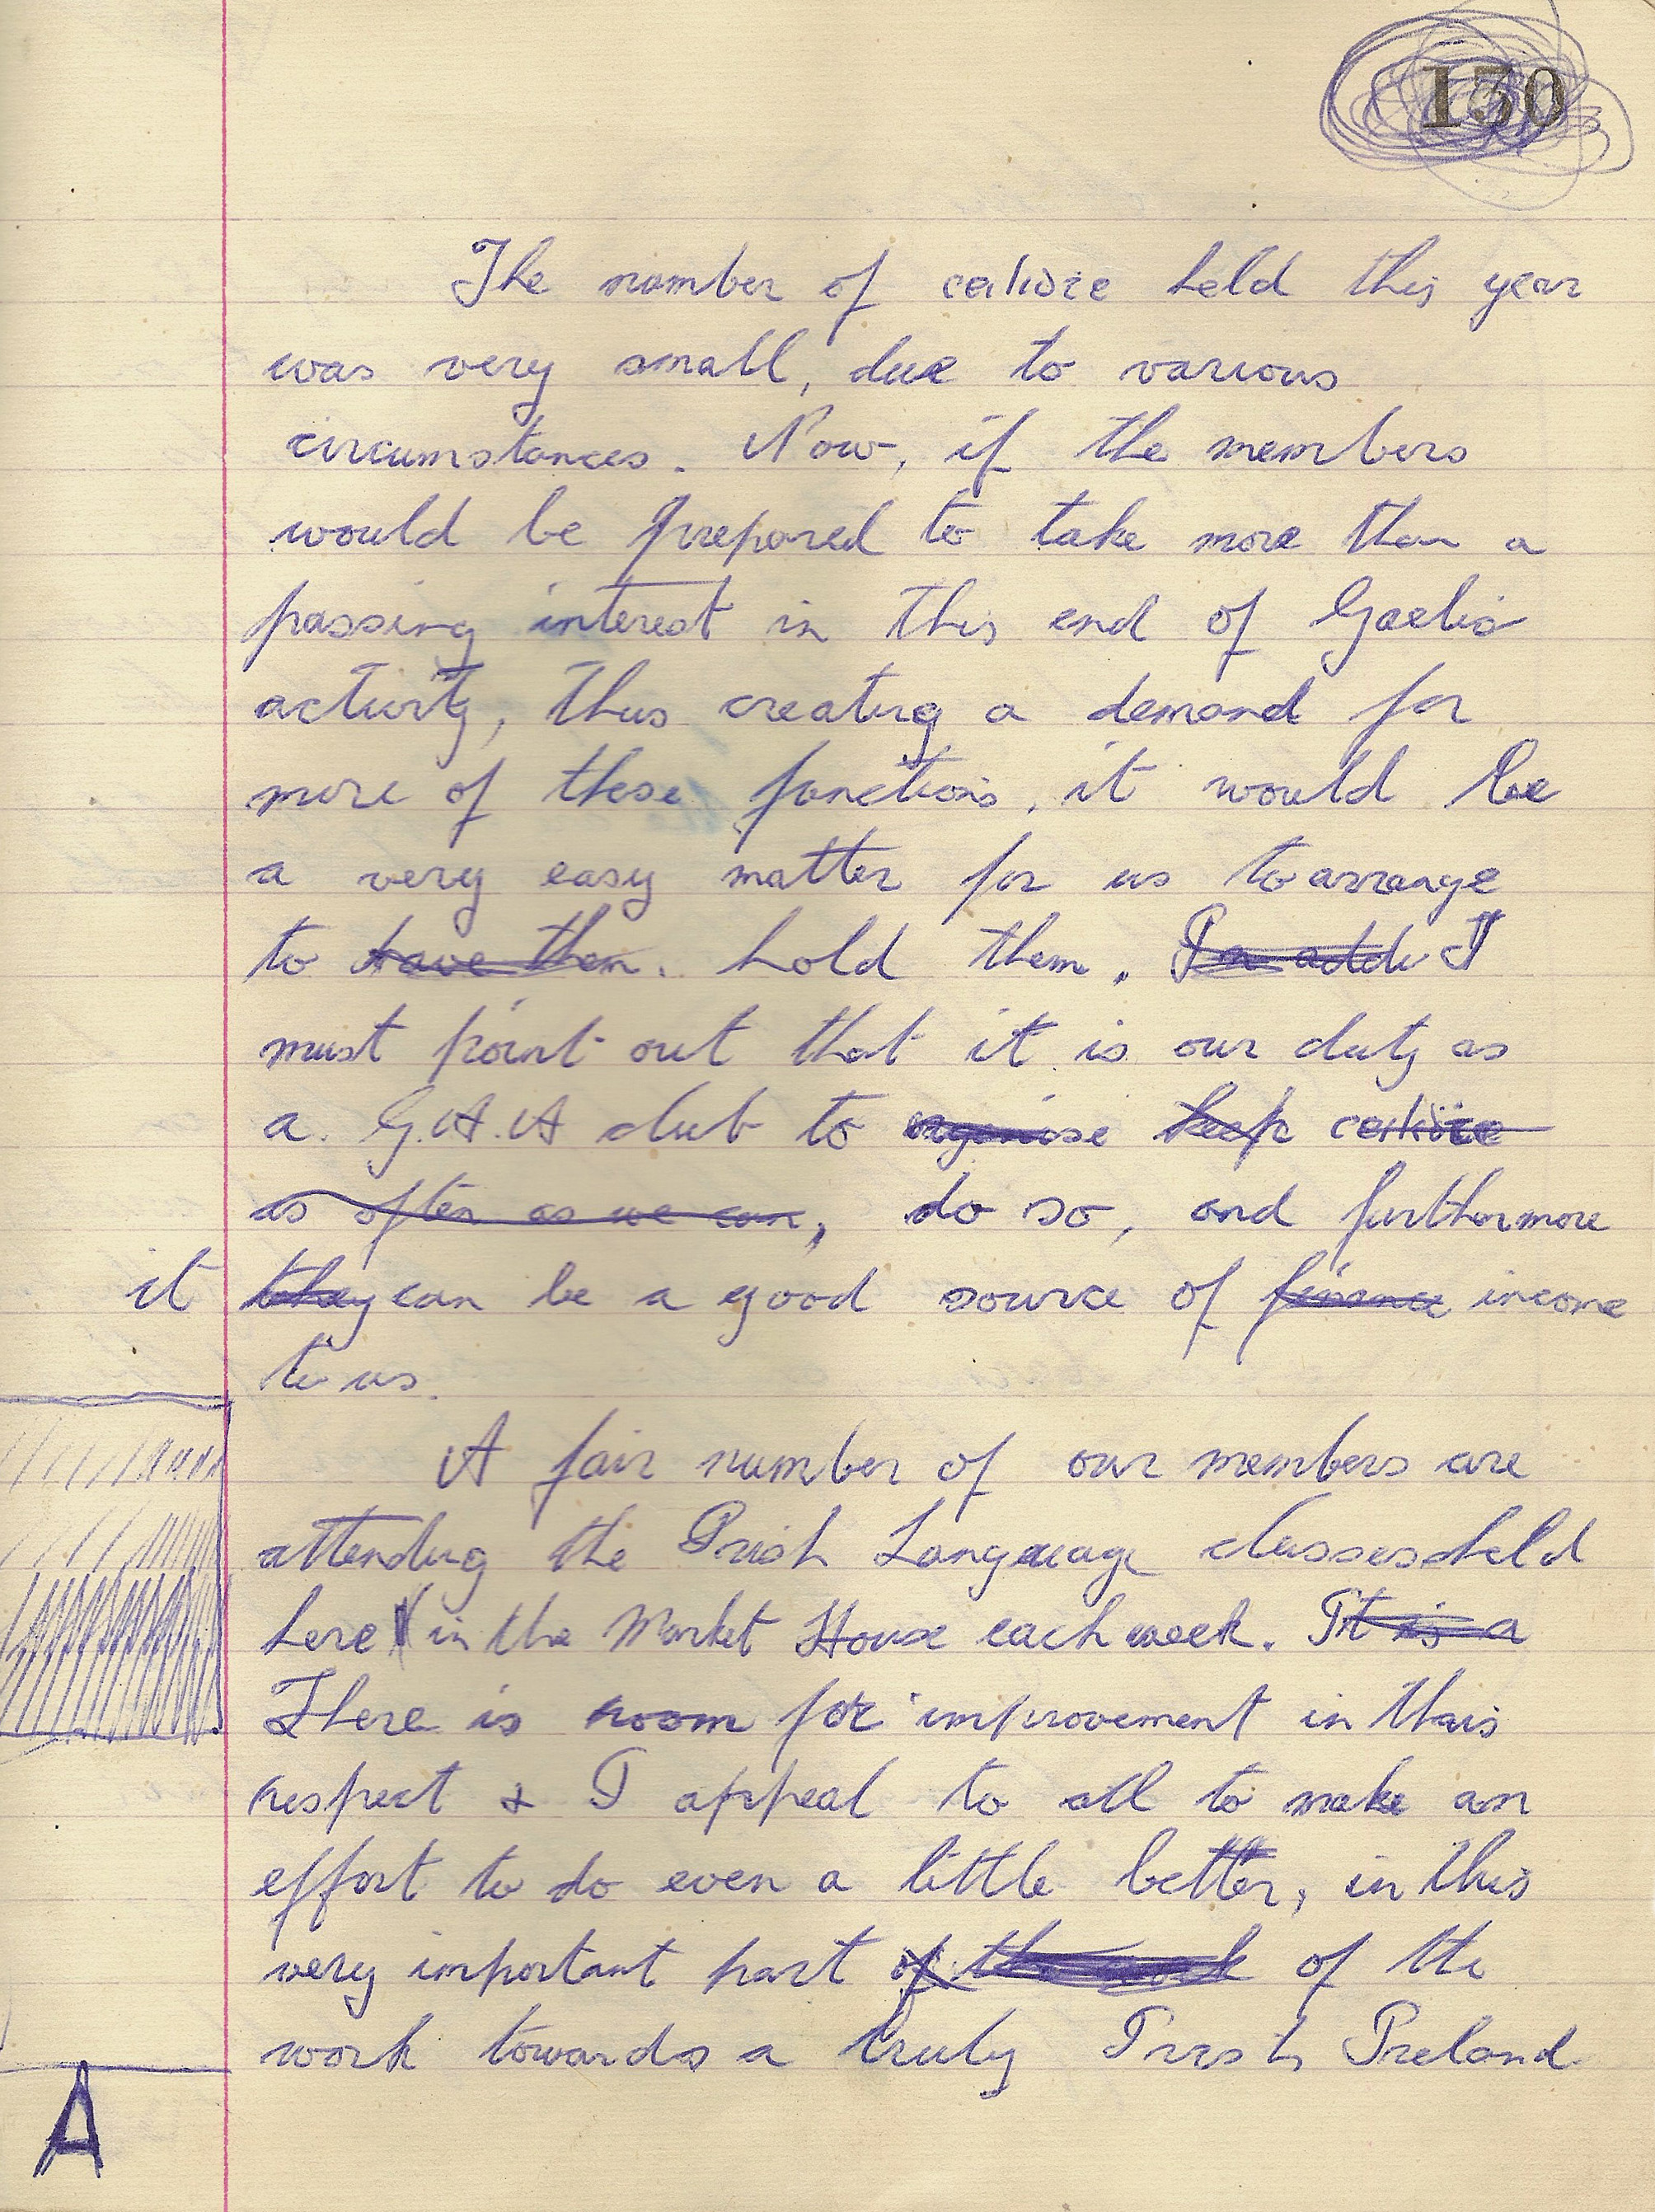 130
The number of ceilidze held this year
was very small, due to various
circumstances. Now, if the members
would be prepared to take more than a
passing interest in this end of Gaelic
activity, thus creating a demand for
more of these functions, it would be
a very easy matter for us to arrange
to have them. hold them. In addi I
must point out that it is our duty as
a. G.A.A club to organise keep
as often as we can, do so, and furthermore
it they can be a good source of finance income
to us.
A fair number of our members are
attending the Irish Language classes held
here in the Market House each week. It is a
There is room for improvement in this
respect & I appeal to all to make an
effort to do even a little better, in this
very important part of the work of the
work towards a truly Irish Ireland
A